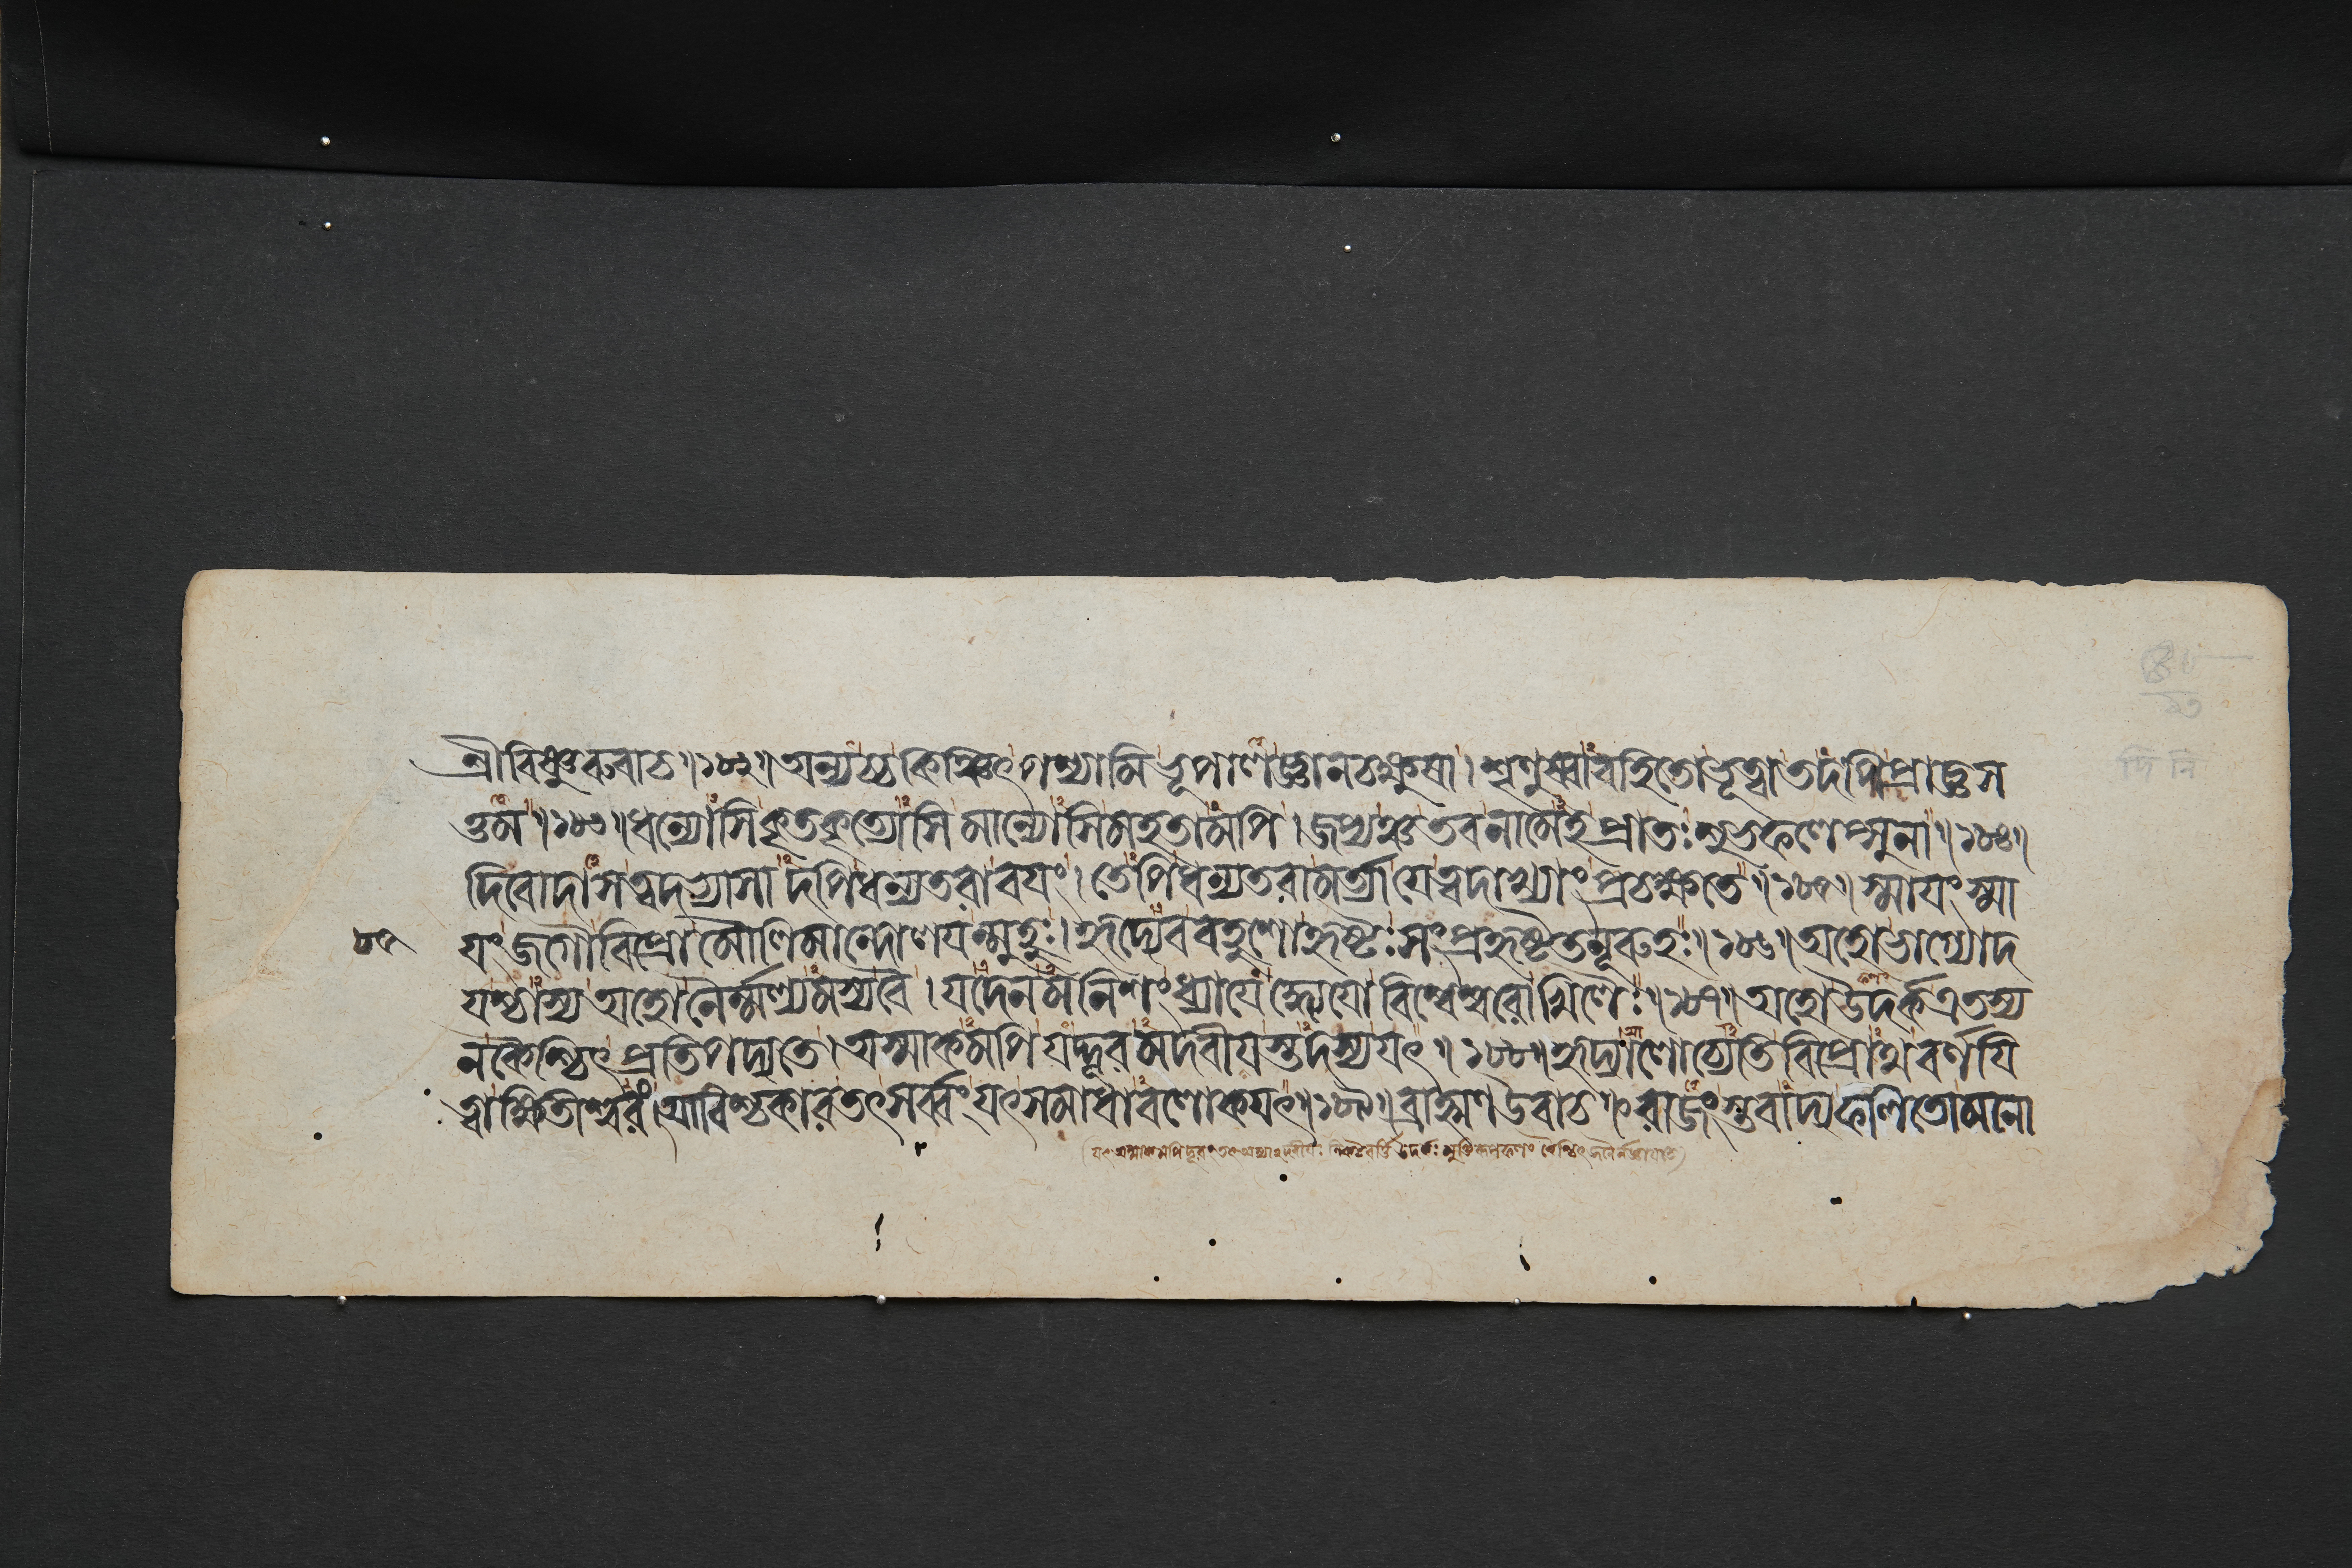 শ্রীবিষ্ণুরুবাচ ॥ ১৮২ ॥ অন্যচ্চ কিঞ্চিৎ পশ্যামি ভূপালজ্ঞানচক্ষুষা । শৃণুষ্বাবহিতোভূত্বা তদপি প্রাজ্ঞস
ত্তম ॥ ১৮৩ ॥ ধন্যোসি কৃতকৃত্যোসি মান্যোসি মহতামপি । জপ্যঞ্চ তব নামেহ প্রাতঃ শুভফলেপ্সুনা ॥ ১৮৪ ॥
দিবোদাসত্বদভ্যাসাদপি ধন্যতরা বয়ং । তেপি ধন্যতরা মর্ত্যা যে ত্বদাখ্যাং প্রচক্ষতে ॥ ১৮৫ ॥ স্মায়ং স্মা
য়ং জগৌ বিপ্রো মৌলিমান্দোলয়ন্মুহুঃ । হৃদ্যেব বহুশো হৃষ্টঃ সংপ্রহৃষ্টতনূরুহঃ ॥ ১৮৬ ॥ অহো ভাগ্যোদ
যশ্চাস্য অহো নৈর্ম্মল্যমস্য বৈ । যদেনমনিশং ধ্যায়েদ্ধ্যেয়ো বিশ্বেশ্বরোখিলৈঃ ॥ ১৮৭ ॥ অহো উদর্ক এতস্য
ন কৈশ্চিৎ প্রতিপদ্যতে । অস্মাকমপি যদ্দূরমদবীয়স্তদস্য যৎ ॥ ১৮৮ ॥ হৃদ্যালোচ্যেতি বিপ্রোথ বর্ণয়ি
ত্বা ক্ষিতীশ্বরং । আবিশ্চকার তৎসর্ব্বং যৎ সমাধাববলোকয়ৎ ॥ ১৮৯ ॥ ব্রাহ্মণ উবাচ ॥ রাজংস্তবাদ্য ফলিতো মনো
৮৫